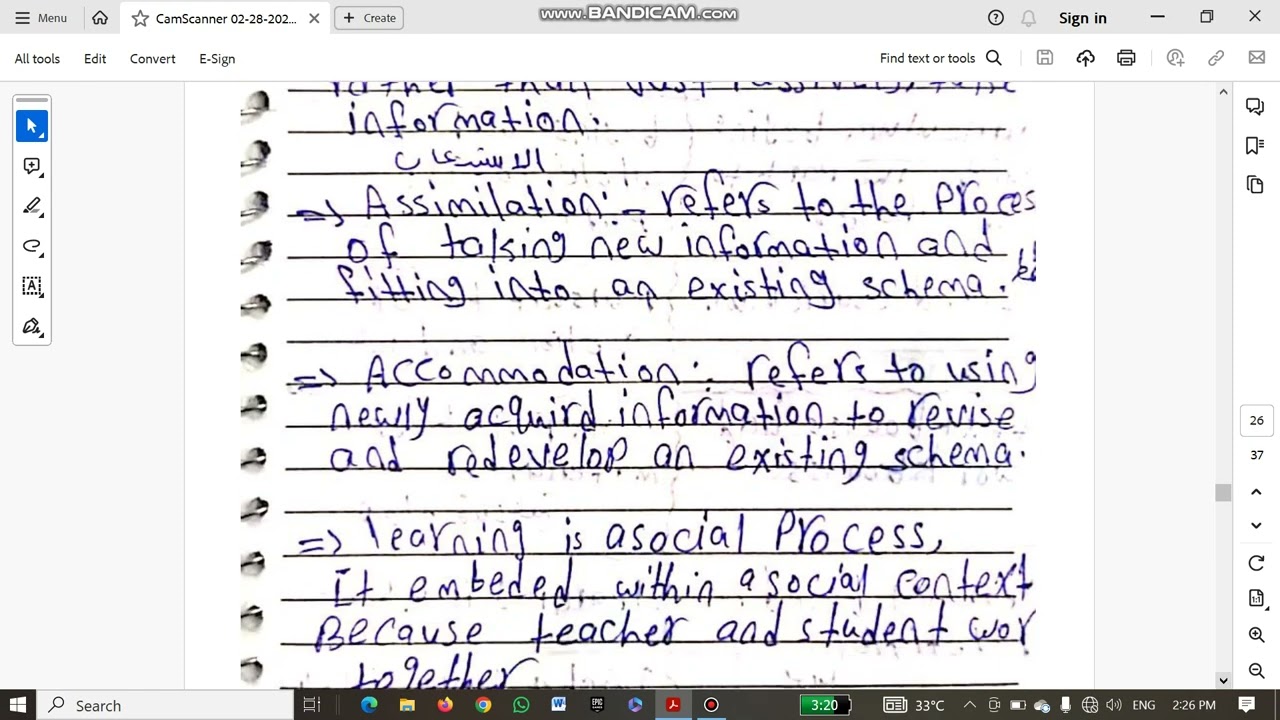 Menu
CamScanner 02-28-202...
Create
www.BANDICAM.com
Sign in
All tools
Edit
Convert
E-Sign
Find text or tools
information.
الاستيعاب
=> Assimilation:- refers to the Proces
of taking new information and
fitting into an existing schema.
=> Accommodation: refers to using
newly acquird information to revise
and redevelop an existing schema.
=> learning is asocial Process,
It embeded within a social context
Because teacher and student wor
together
26
37
Search
3:20
33°C
ENG
2:26 PM